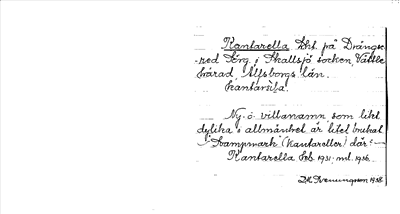 Kantarella, lht. på Drängse-
red Sörg. i Skallsjö socken, Vättle
härad, Älfsborgs län.
kantaräla.
Ny. ö. villanamn, som likt
dylika i allmänhet är litet brukat
Svampmark (kantareller) där.
Kantarella feb. 1931; mt. 1936.
1938.